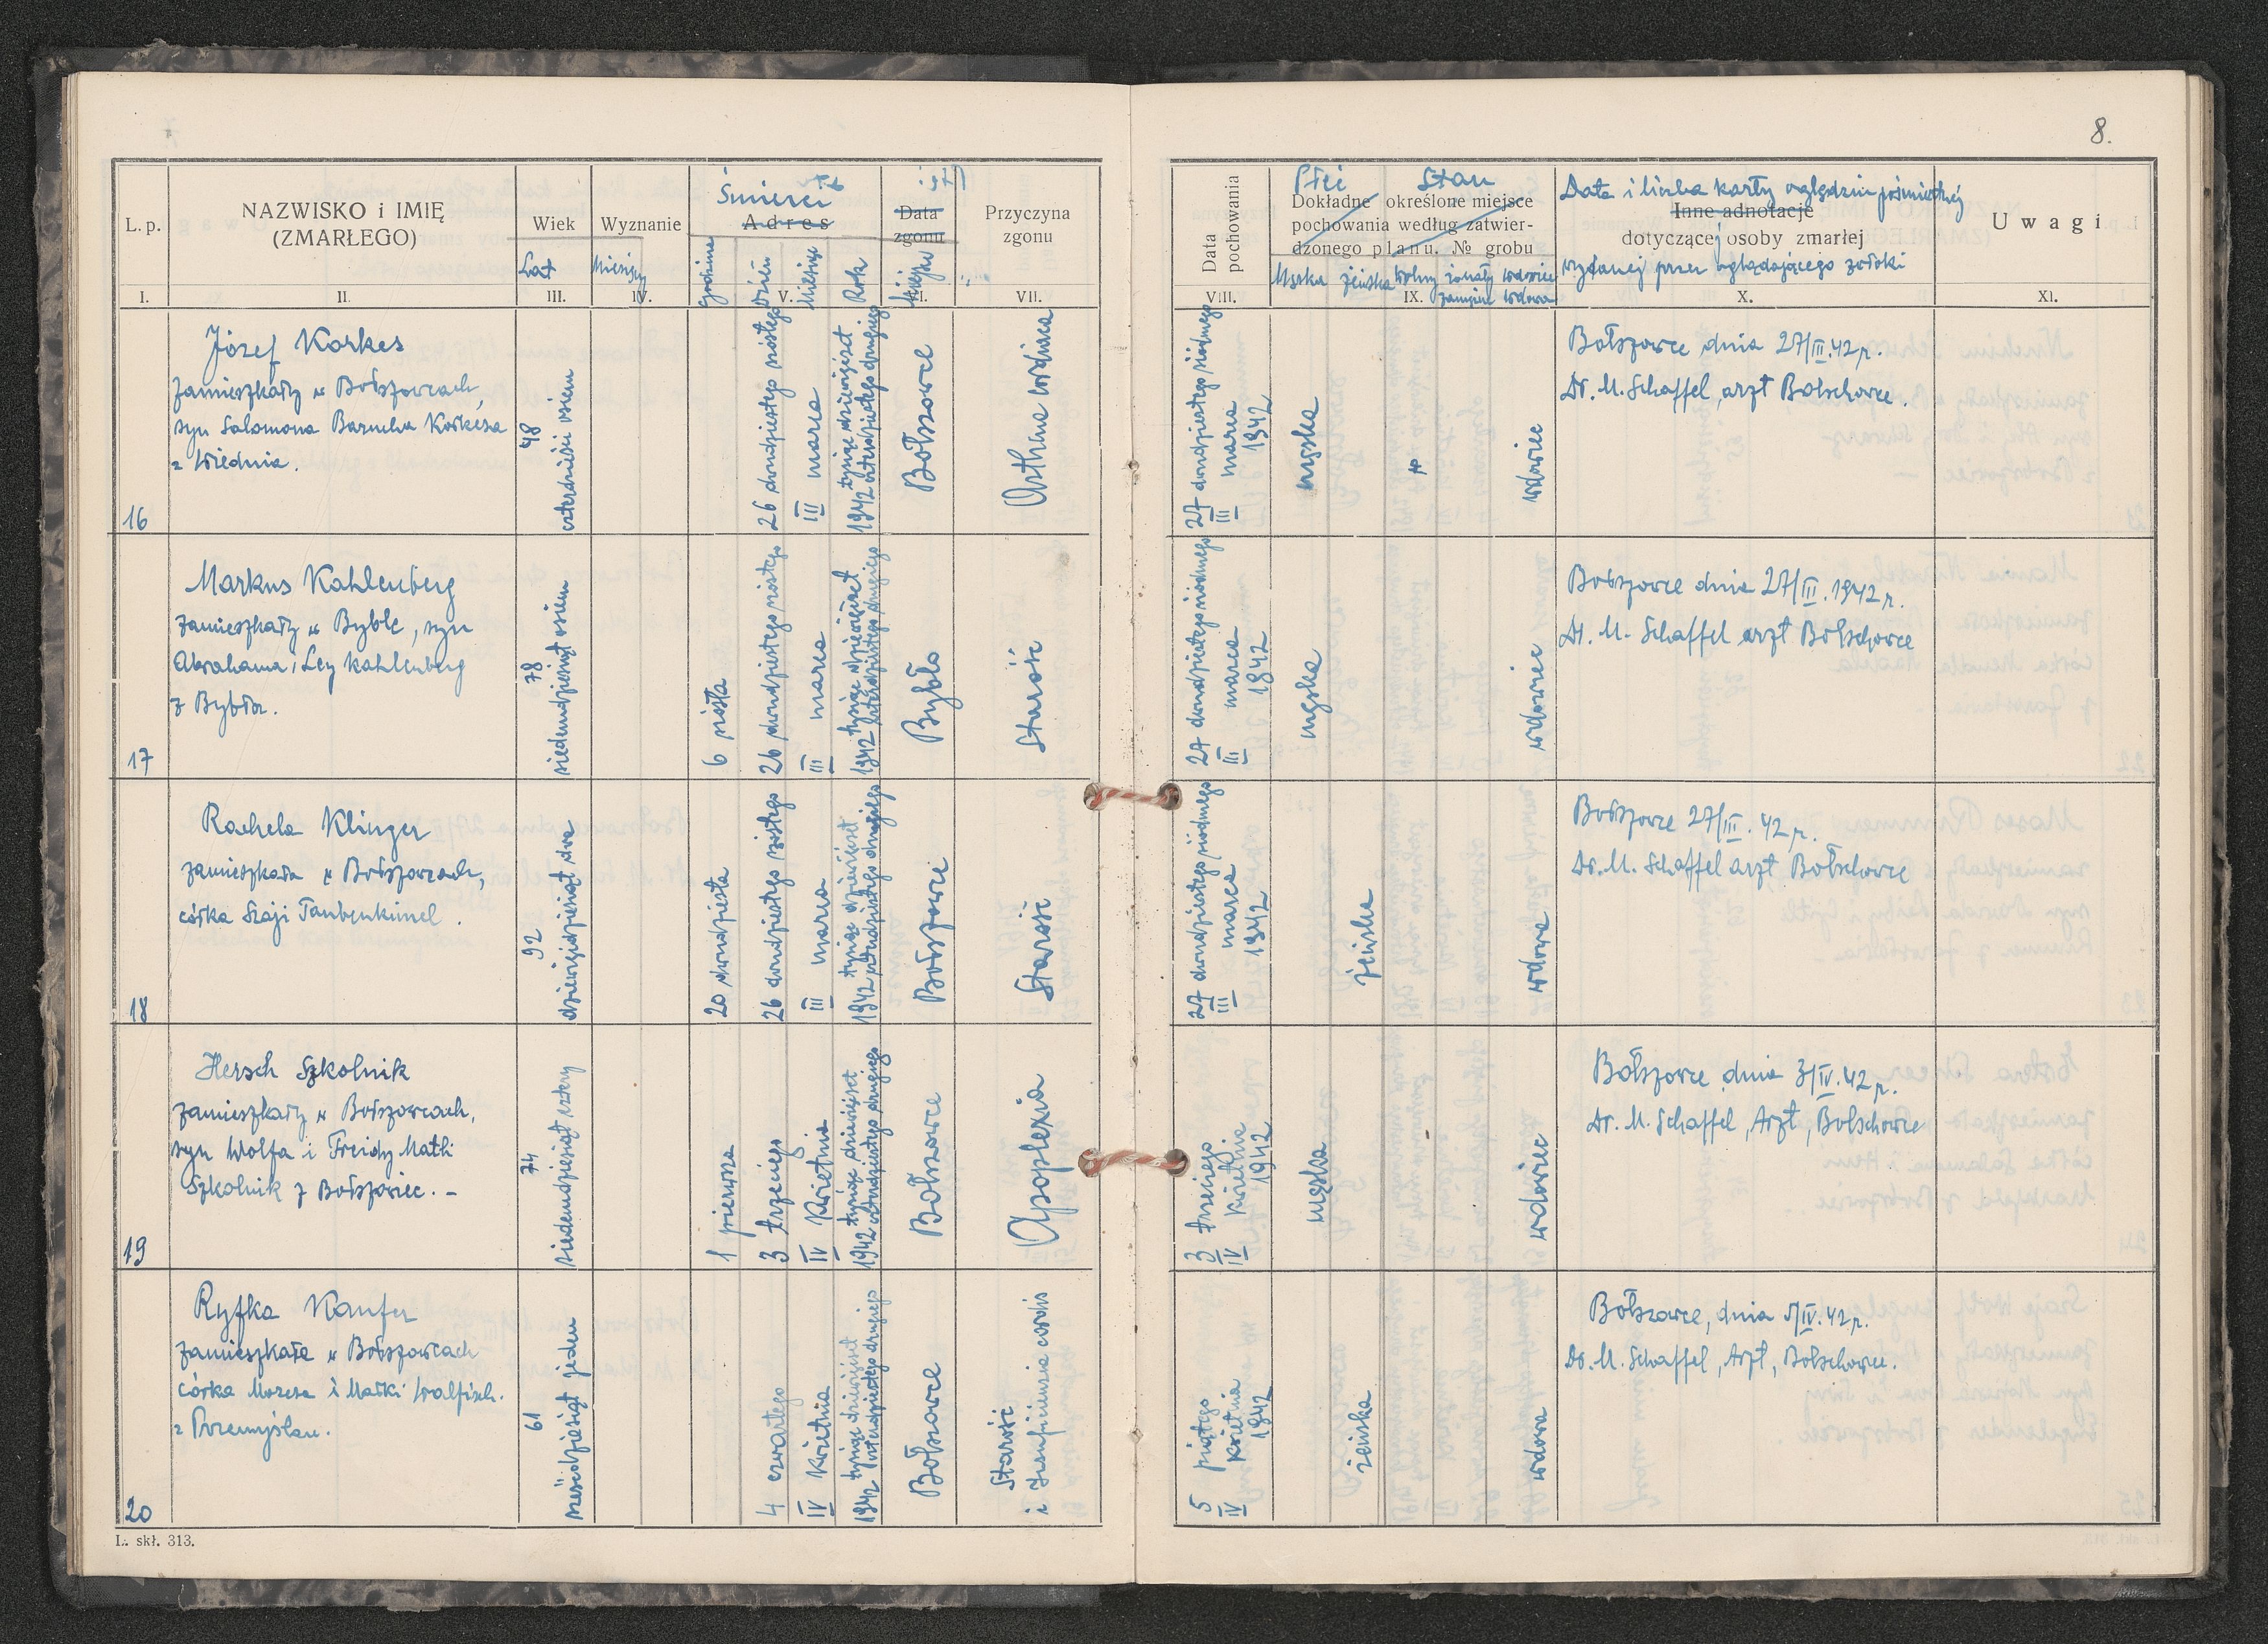 8.
L. p.
NAZWISKO i IMIĘ
(ZMARŁEGO)
Wiek
Lat
Wyznanie
Miesięcy
Śmierci
Adres
godzina
dzień
Miesiąc
Rok
Data
zgonu
Miejsce
Przyczyna
zgonu
Data
pochowania
Płeć Stan
Dokładne określone miejsce
pochowania według zatwier-
dzonego planu. № grobu
Męska żeńska Wolny żonaty wdowiec
zamężna wdowa
Data i liczba karty oględzin pośmiertnej
Inne adnotacje
dotyczącej osoby zmarłej
wydanej przez oglądającego zwłoki
Uwagi
I. II. III. IV. V. VI. VII. VIII. IX. X. XI.
16
Józef Korkes
zamieszkały w Bołszowcach,
syn Salomona Barucha Korkesa
z Wiednia.
48
czterdzieści osiem
26 dwudziestego szóstego
III marca
tysiąc dziewięćset
1942 czterdziestego drugiego
Bołszowce
Asthma cardiaca
27 dwudziestego siódmego
III marca
1942
męska
wdowiec
Bołszowce dnia 27/III.42 r.
Dr. M. Schaffel, arzt Bolschowce.
17
Markus Kahlenberg
zamieszkały w Bybłe, syn
Abrahama i Ley Kahlenberg
z Bybła.
78
siedemdziesiąt osiem
6 szósta
26 dwudziestego szóstego
III marca
tysiąc dziewięćset
1942 czterdziestego drugiego
Bybło
Starość
27 dwudziestego siódmego
III marca
1942
męska
wdowiec
Bołszowce dnia 27/III.1942 r.
Dr. M. Schaffel arzt Bolschowce
18
Rachela Klinger
zamieszkała w Bołszowcach,
córka Szaji Taubenkimel.
92
dziewięćdziesiąt dwa
20 dwudziesta
26 dwudziestego szóstego
III marca
tysiąc dziewięćset
1942 czterdziestego drugiego
Bołszowce
Starość
27 dwudziestego siódmego
III marca
1942
żeńska
wdowa
Bołszowce 27/III.42 r.
Dr. M. Schaffel arzt Bolschowce
19
Hersch Szkolnik
zamieszkały w Bołszowcach,
syn Wolfa i Freidy Matli
Szkolnik z Bołszowiec. -
74
siedemdziesiąt cztery
1 pierwsza
3 trzeciego
IV Kwietnia
tysiąc dziewięćset
1942 czterdziestego drugiego
Bołszowce
Apoplexia
3 trzeciego
IV Kwietnia
1942
męska
wdowiec
Bołszowce dnia 3/IV.42 r.
Dr. M. Schaffel, Arzt, Bolschowce
20
Ryfka Kanfer
zamieszkała w Bołszowcach
córka Mozesa i Małki Walfisch.
z Przemyślan.
61
sześćdziesiąt jeden
4 czwartego
IV Kwietnia
tysiąc dziewięćset
1942 czterdziestego drugiego
Bołszowce
Starość
i Insuficiencia cordis
5 piątego
IV Kwietnia
1942
żeńska
wdowa
Bołszowce, dnia 5/IV.42 r.
Dr. M. Schaffel, Arzt, Bolschowce.
L. skł. 313.